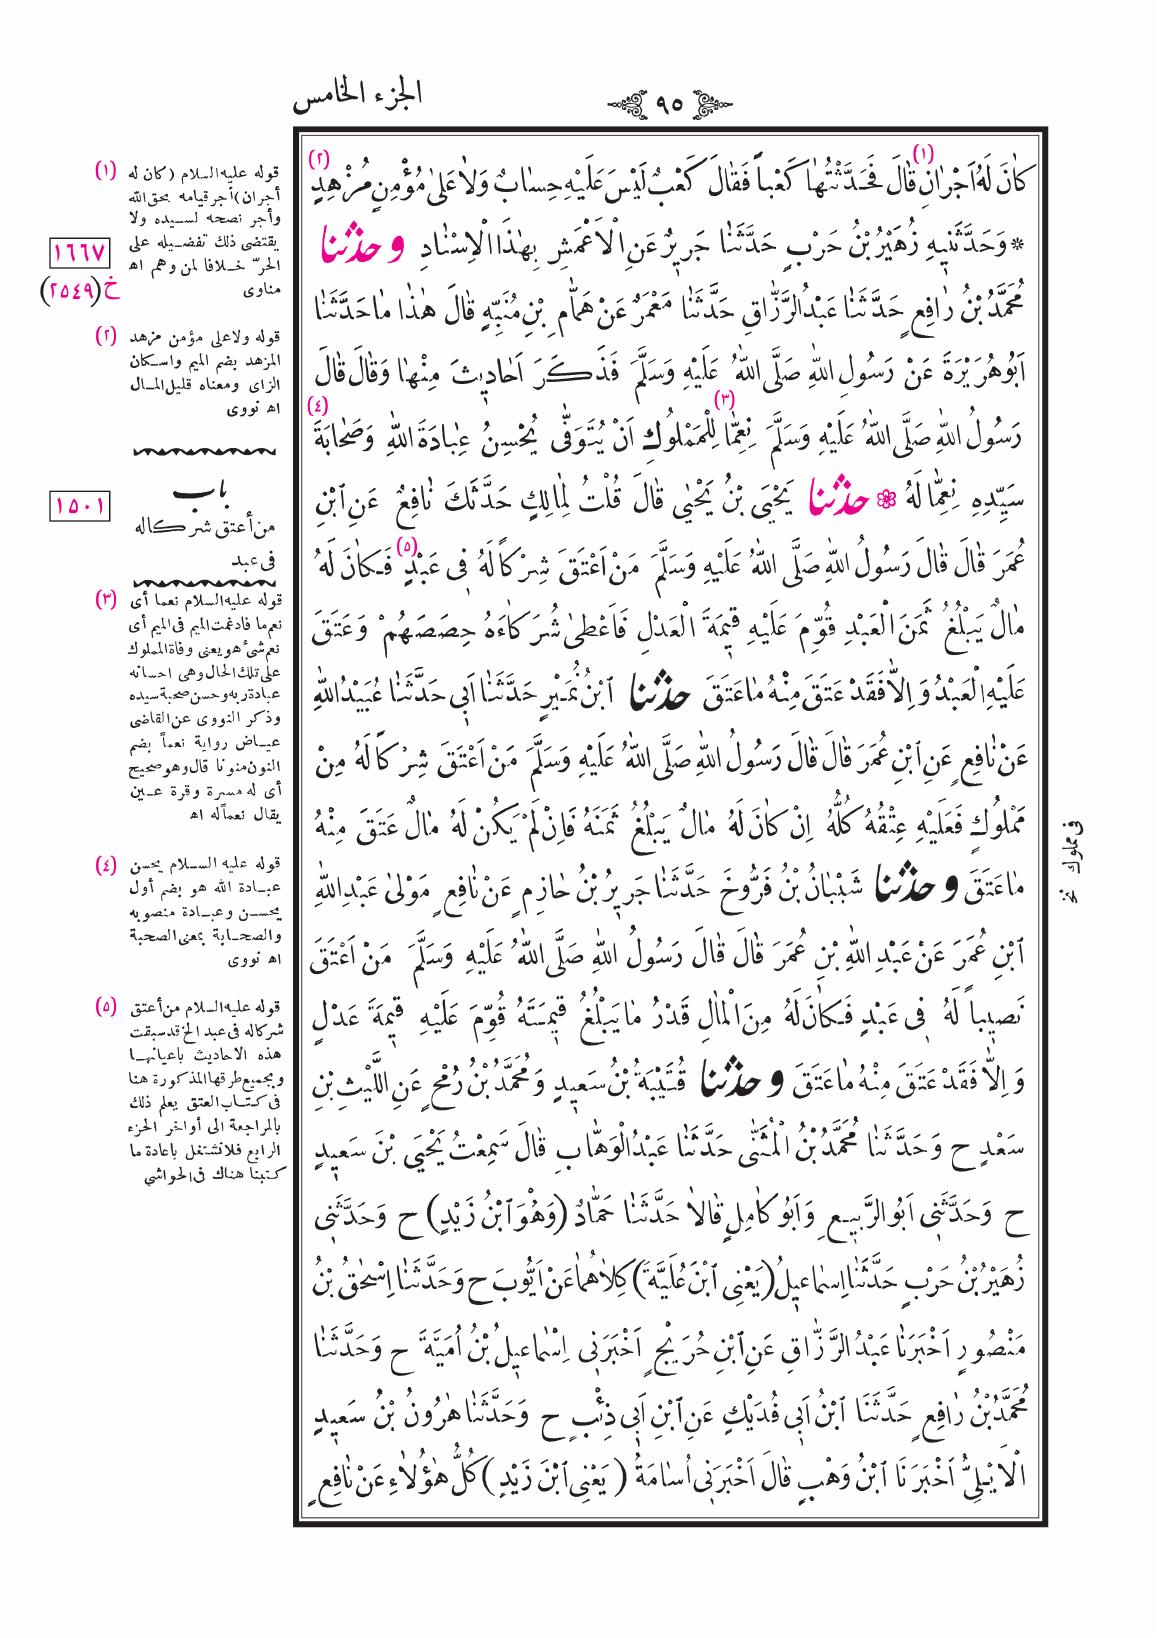 الجزء الخامس
٩٥
كَانَ لَهُ اَجْرَانِ (١) قَالَ فَحَدَّثْتُهَا كَعْباً فَقَالَ كَعْبٌ لَيْسَ عَلَيْهِ حِسَابٌ وَلَا عَلَى مُؤْمِنٍ مُزْهِدٍ (٢)
* وَحَدَّثَنِيهِ زُهَيْرُ بْنُ حَرْبٍ حَدَّثَنَا جَرِيرٌ عَنِ الْاَعْمَشِ بِهٰذَا الْاِسْنَادِ و حدثنا
مُحَمَّدُ بْنُ رَافِعٍ حَدَّثَنَا عَبْدُ الرَّزَّاقِ حَدَّثَنَا مَعْمَرٌ عَنْ هَمَّامِ بْنِ مُنَبِّهٍ قَالَ هٰذَا مَا حَدَّثَنَا
اَبُو هُرَيْرَةَ عَنْ رَسُولِ اللّٰهِ صَلَّى اللّٰهُ عَلَيْهِ وَسَلَّمَ فَذَكَرَ اَحَادِيثَ مِنْهَا وَقَالَ قَالَ
رَسُولُ اللّٰهِ صَلَّى اللّٰهُ عَلَيْهِ وَسَلَّمَ نِعِمَّا (٣) لِلْمَمْلُوكِ اَنْ يُتَوَفّٰى يُحْسِنُ عِبَادَةَ اللّٰهِ وَصَحَابَةَ (٤)
سَيِّدِهِ نِعِمَّا لَهُ حدثنا يَحْيَى بْنُ يَحْيٰى قَالَ قُلْتُ لِمَالِكٍ حَدَّثَكَ نَافِعٌ عَنِ ابْنِ
عُمَرَ قَالَ قَالَ رَسُولُ اللّٰهِ صَلَّى اللّٰهُ عَلَيْهِ وَسَلَّمَ مَنْ اَعْتَقَ شِرْكاً لَهُ فِى عَبْدٍ (٥) فَكَانَ لَهُ
مَالٌ يَبْلُغُ ثَمَنَ الْعَبْدِ قُوِّمَ عَلَيْهِ قِيمَةَ الْعَدْلِ فَاَعْطٰى شُرَكَاءَهُ حِصَصَهُمْ وَعَتَقَ
عَلَيْهِ الْعَبْدُ وَاِلَّا فَقَدْ عَتَقَ مِنْهُ مَا عَتَقَ حدثنا ابْنُ نُمَيْرٍ حَدَّثَنَا اَبِى حَدَّثَنَا عُبَيْدُ اللّٰهِ
عَنْ نَافِعٍ عَنِ ابْنِ عُمَرَ قَالَ قَالَ رَسُولُ اللّٰهِ صَلَّى اللّٰهُ عَلَيْهِ وَسَلَّمَ مَنْ اَعْتَقَ شِرْكاً لَهُ مِنْ
مَمْلُوكٍ فَعَلَيْهِ عِتْقُهُ كُلُّهُ اِنْ كَانَ لَهُ مَالٌ يَبْلُغُ ثَمَنَهُ فَاِنْ لَمْ يَكُنْ لَهُ مَالٌ عَتَقَ مِنْهُ
مَا عَتَقَ و حدثنا شَيْبَانُ بْنُ فَرُّوخَ حَدَّثَنَا جَرِيرُ بْنُ حَازِمٍ عَنْ نَافِعٍ مَوْلٰى عَبْدِ اللّٰهِ
ابْنِ عُمَرَ عَنْ عَبْدِ اللّٰهِ بْنِ عُمَرَ قَالَ قَالَ رَسُولُ اللّٰهِ صَلَّى اللّٰهُ عَلَيْهِ وَسَلَّمَ مَنْ اَعْتَقَ
نَصِيباً لَهُ فِى عَبْدٍ فَكَانَ لَهُ مِنَ الْمَالِ قَدْرُ مَا يَبْلُغُ قِيمَتَهُ قُوِّمَ عَلَيْهِ قِيمَةَ عَدْلٍ
وَاِلَّا فَقَدْ عَتَقَ مِنْهُ مَا عَتَقَ و حدثنا قُتَيْبَةُ بْنُ سَعِيدٍ وَمُحَمَّدُ بْنُ رُمْحٍ عَنِ اللَّيْثِ بْنِ
سَعْدٍ ح وَحَدَّثَنَا مُحَمَّدُ بْنُ الْمُثَنّٰى حَدَّثَنَا عَبْدُ الْوَهَّابِ قَالَ سَمِعْتُ يَحْيَى بْنَ سَعِيدٍ
ح وَحَدَّثَنِى اَبُو الرَّبِيعِ وَاَبُو كَامِلٍ قَالَا حَدَّثَنَا حَمَّادٌ (وَهُوَ ابْنُ زَيْدٍ) ح وَحَدَّثَنِى
زُهَيْرُ بْنُ حَرْبٍ حَدَّثَنَا اِسْمَاعِيلُ (يَعْنِى ابْنَ عُلَيَّةَ) كِلَاهُمَا عَنْ اَيُّوبَ ح وَحَدَّثَنَا اِسْحٰقُ بْنُ
مَنْصُورٍ اَخْبَرَنَا عَبْدُ الرَّزَّاقِ عَنِ ابْنِ جُرَيْجٍ اَخْبَرَنِى اِسْمَاعِيلُ بْنُ اُمَيَّةَ ح وَحَدَّثَنَا
مُحَمَّدُ بْنُ رَافِعٍ حَدَّثَنَا ابْنُ اَبِى فُدَيْكٍ عَنِ ابْنِ اَبِى ذِئْبٍ ح وَحَدَّثَنَا هٰرُونُ بْنُ سَعِيدٍ
الْاَيْلِىُّ اَخْبَرَنَا ابْنُ وَهْبٍ قَالَ اَخْبَرَنِى اُسَامَةُ (يَعْنِى ابْنَ زَيْدٍ) كُلُّ هٰؤُلَاءِ عَنْ نَافِعٍ
فى مملوك نخ
(١) قوله عليه السلام (كان له
أجران) أجر قيامه بحق الله
وأجر نصحه لسيده ولا
يقتضى ذلك تفضيله على
الحرّ خلافا لمن وهم اه
مناوى
١٦٦٧
خ (٢٥٤٩)
(٢) قوله ولا على مؤمن مزهد
المزهد بضم الميم واسكان
الزاى ومعناه قليل المال
اه نووى
باب
من أعتق شركا له
فى عبد
١٥٠١
(٣) قوله عليه السلام نعما أى
نعم ما فادغمت الميم فى الميم أى
نعم شئ هو يعنى وفاة المملوك
على تلك الحال وهى احسانه
عبادة ربه وحسن صحبة سيده
وذكر النووى عن القاضى
عياض رواية نعماً بضم
النون منونا قال وهو صحيح
أى له مسرة وقرة عين
يقال نعماً له اه
(٤) قوله عليه السلام يحسن
عبادة الله هو بضم أول
يحسن وعبادة منصوبه
والصحابة بمعنى الصحبة
اه نووى
(٥) قوله عليه السلام من أعتق
شركا له فى عبد الخ قد سبقت
هذه الاحاديث باعيانها
وبجميع طرقها المذكورة هنا
فى كتاب العتق يعلم ذلك
بالمراجعة الى أواخر الجزء
الرابع فلا نشتغل باعادة ما
كتبنا هناك فى الحواشي